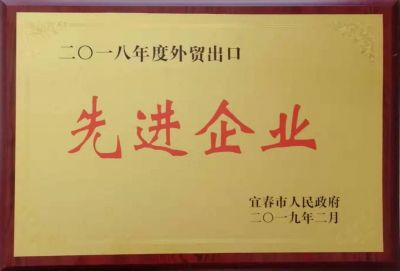 二〇一八年度外贸出口
先进企业
宜春市人民政府
二〇一九年二月